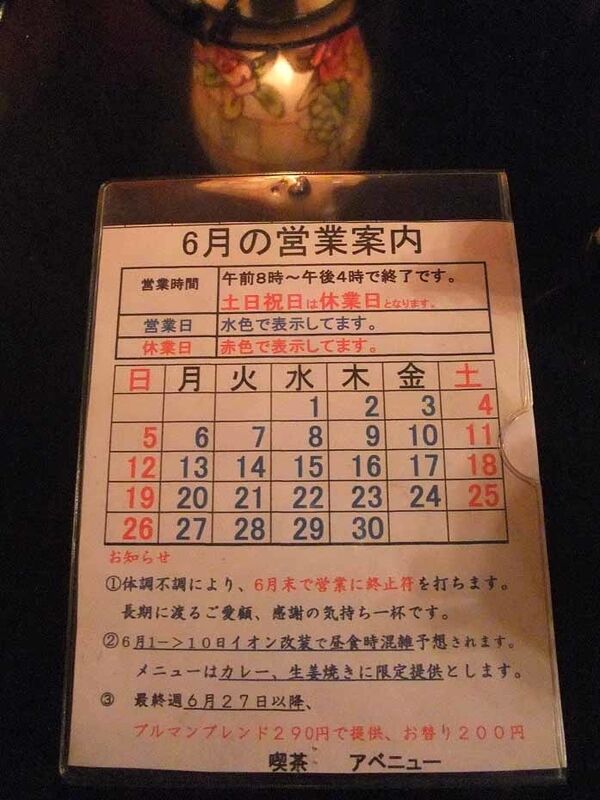 6月の営業案内
営業時間 午前8時~午後4時で終了です。
土日祝日は休業日となります。
営業日 水色で表示してます。
休業日 赤色で表示してます。
日 月 火 水 木 金 土
1 2 3 4
5 6 7 8 9 10 11
12 13 14 15 16 17 18
19 20 21 22 23 24 25
26 27 28 29 30
お知らせ
①体調不調により、6月末で営業に終止符を打ちます。
長期に渡るご愛顧、感謝の気持ち一杯です。
②6月1ー>10日イオン改装で昼食時混雑予想されます。
メニューはカレー、生姜焼きに限定提供とします。
③ 最終週6月27日以降、
ブルマンブレンド290円で提供、お替り200円
喫茶 アベニュー